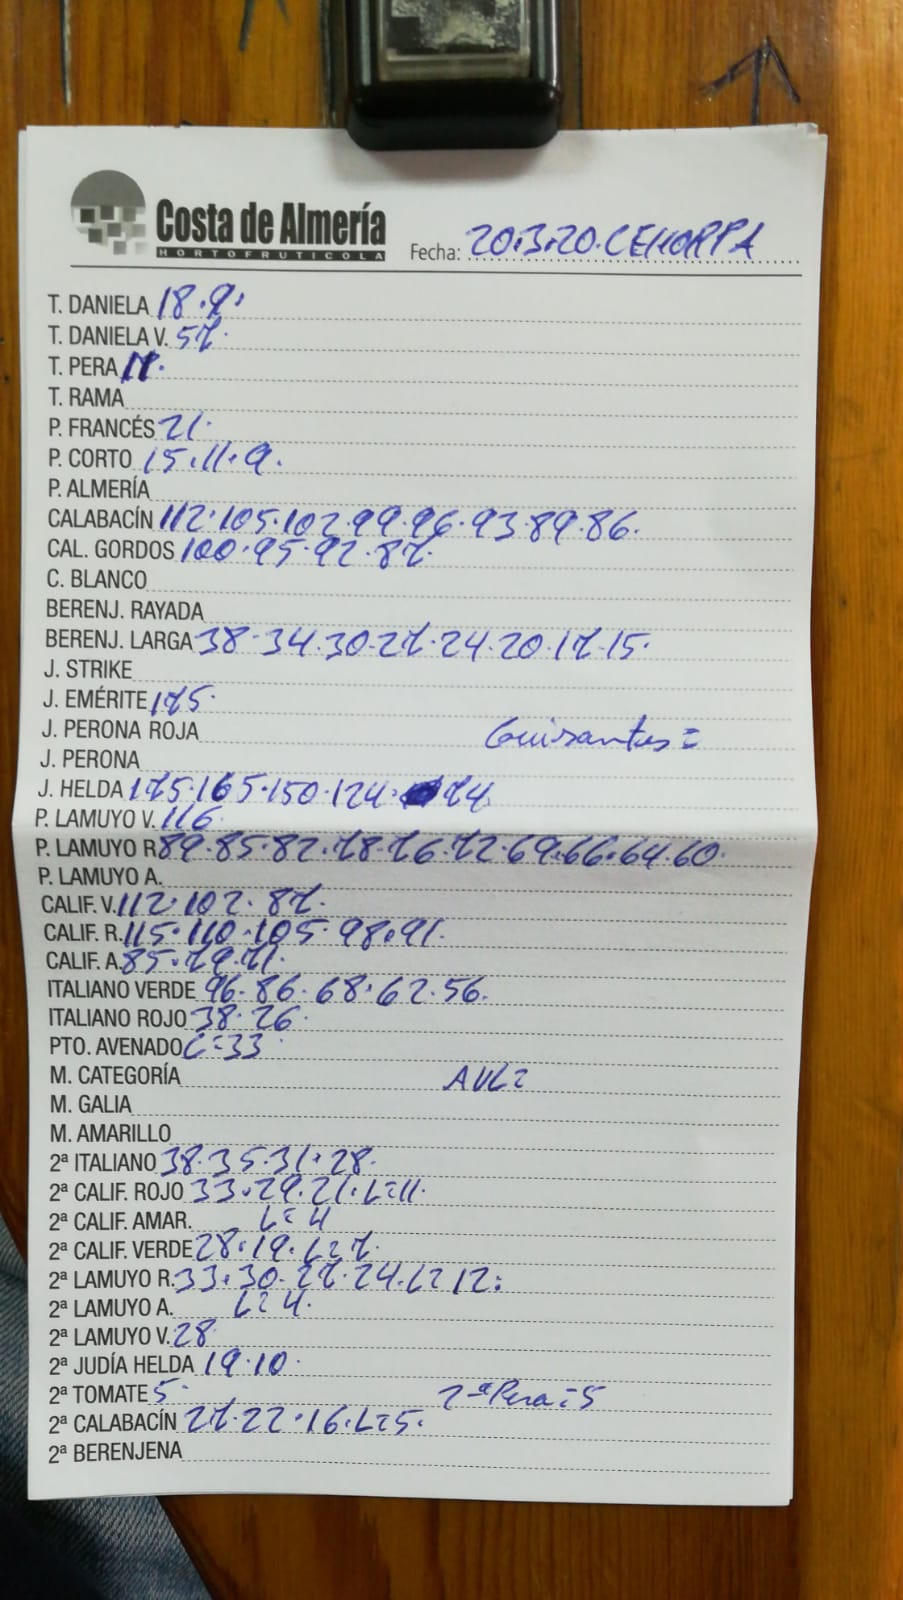 Costa de Almería
HORTOFRUTICOLA
Fecha: 20.3.20. CEHORPA
T. DANIELA 18.9.
T. DANIELA V. 57.
T. PERA 11.
T. RAMA
P. FRANCÉS 21.
P. CORTO 15.11.9.
P. ALMERÍA
CALABACÍN 112.105.102.99.96.93.89.86.
CAL. GORDOS 100.95.92.87.
C. BLANCO
BERENJ. RAYADA
BERENJ. LARGA 38.34.30.27.24.20.17.15.
J. STRIKE
J. EMÉRITE 175.
J. PERONA ROJA Guisantes=
J. PERONA
J. HELDA 175.165.150.124. 74
P. LAMUYO V. 116
P. LAMUYO R 89.85.82.78.76.72.69.66.64.60.
P. LAMUYO A.
CALIF. V. 112.102.87.
CALIF. R. 115.110.105.98.91.
CALIF. A. 85.79.71.
ITALIANO VERDE 96.86.68.62.56.
ITALIANO ROJO 38.26.
PTO. AVENADO C=33
M. CATEGORÍA AVL=
M. GALIA
M. AMARILLO
2ª ITALIANO 38.35.31.28.
2ª CALIF. ROJO 33.29.21.L=11.
2ª CALIF. AMAR. L=4
2ª CALIF. VERDE 28.19.L=7.
2ª LAMUYO R. 33.30.27.24.L=12.
2ª LAMUYO A. L=4.
2ª LAMUYO V. 28
2ª JUDÍA HELDA 19.10.
2ª TOMATE 5. 2ªPera=5
2ª CALABACÍN 27.22.16.L=5.
2ª BERENJENA